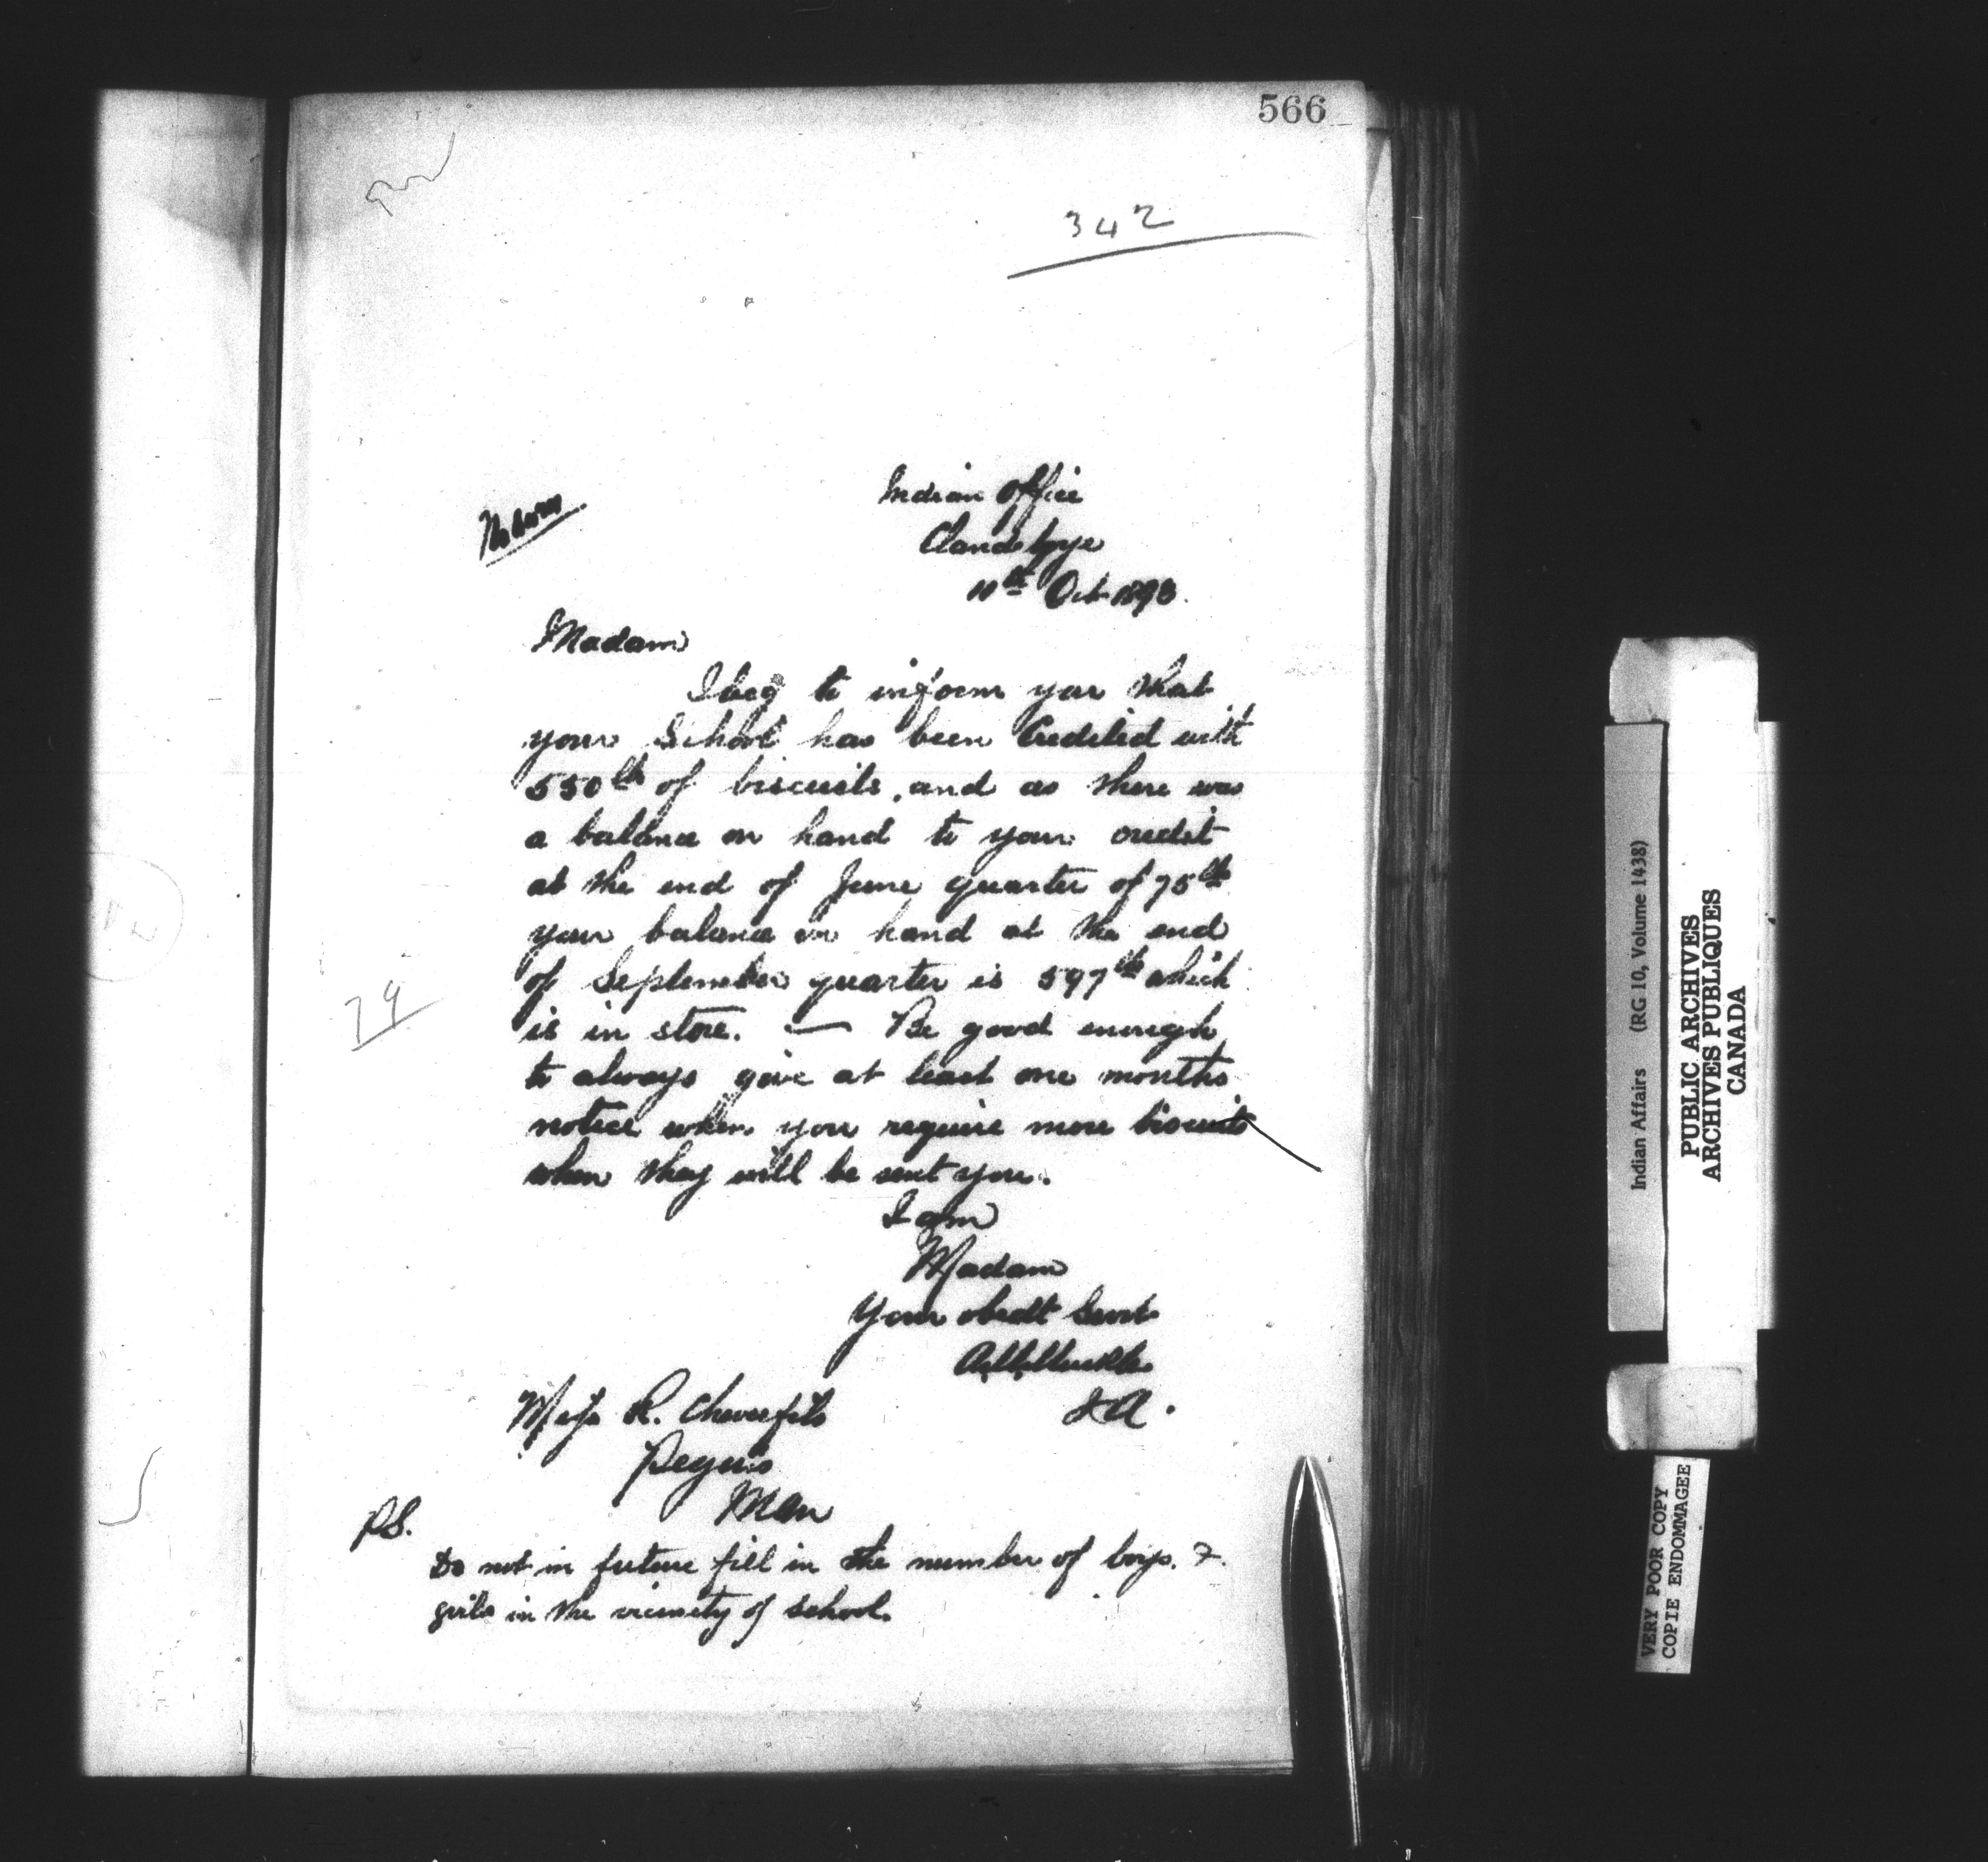 566
342
Indian Office
Clandeboye
11th Oct 1893.
Madam
I beg to inform you that
your School has been Credited with
550 lbs of biscuits, and as there was
a balance on hand to your credit
at the end of June quarter of 75 lbs
your balance on hand at the end
of September quarter is 597 lbs which
is in store. — Be good enough
to always give at least one months
notice when you require more biscuits
when they will be sent you.
I am
Madam
Your obedt Servt
I A.
Miss R.
Peguis
Man
P.S.
Do not in future fill in the number of boys &
girls in the vicinity of school.
74
Indian Affairs (RG 10, Volume 1438)
PUBLIC ARCHIVES
ARCHIVES PUBLIQUES
CANADA
VERY POOR COPY
COPIE ENDOMMAGEE